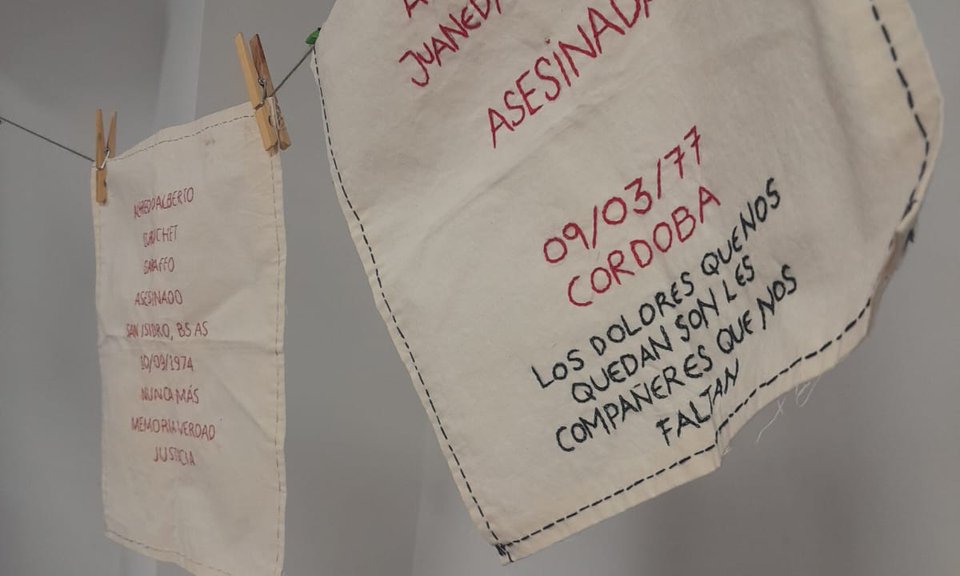 ALBERTO
ASESINADO
SAN ISIDRO, BS AS
10/09/1974
NUNCA MÁS
MEMORIA VERDAD
JUSTICIA
ASESINADA
09/03/77
CORDOBA
LOS DOLORES QUE NOS
QUEDAN SON LES
COMPAÑERES QUE NOS
FALTAN